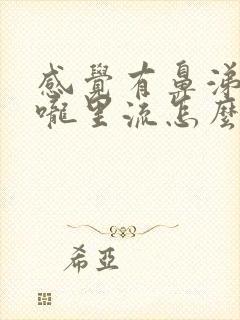 感覺有鼻涕
嚨里流怎麼
希亞